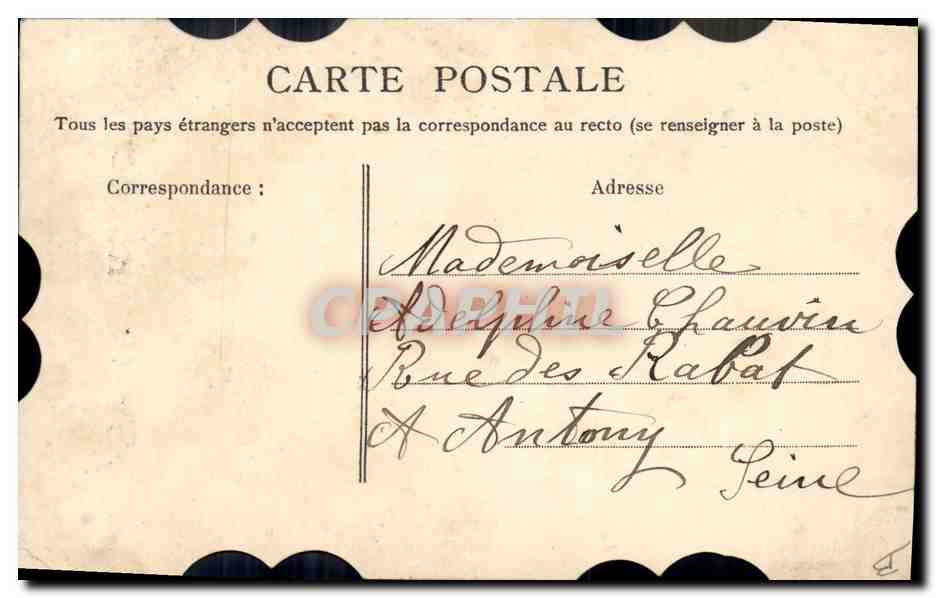 CARTE POSTALE
Tous les pays étrangers n'acceptent pas la correspondance au recto (se renseigner à la poste)
Correspondance :
Adresse
Mademoiselle
Adelphine Chauvin
Rue des Rabat
A Antony
Seine
CPAPHIL